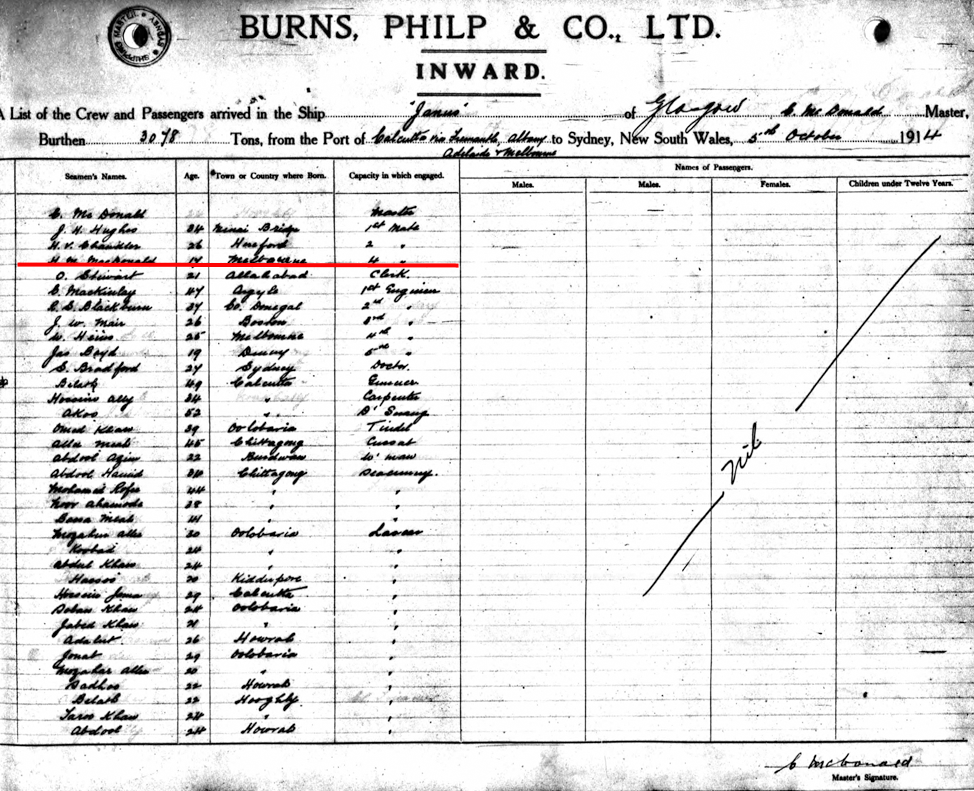 BURNS, PHILP & CO., LTD.
INWARD.
A List of the Crew and Passengers arrived in the Ship "Janus" of Glasgow C. McDonald Master,
Burthen 3078 Tons, from the Port of Calcutta via Fremantle, Albany to Sydney, New South Wales, 5th October 1914
Adelaide & Melbourne
Seamen's Names. Age. *Town or Country where Born. Capacity in which engaged. Names of Passengers.
Males. Males. Females. Children under Twelve Years.
C. McDonald Master
J. H. Hughes 34 Menai Bridge 1st Mate
H. V. Chandler 26 Hereford 2 "
H. M. MacDonald 17 Melbourne 4 "
O. Stewart 21 Allahabad Clerk.
C. Mackinlay 47 Argyle 1st Engineer
Blackburn 37 Co. Donegal 2nd "
J. W. Mair 26 Boston 3rd "
W. Heins 25 Melbourne 4th "
Jas Boyd 19 5th "
Bradford 27 Sydney Doctor.
Belath 49 Calcutta Gunner
Hossein Ally 34 " Carpenter
Akoo 52 "
Omed Khan 39 Oolobaria Tindel
Alla Meah 45 Chittagong Cussab
Abdool Azim 22 Burdwan W' man
Abdool Hamid 34 Chittagong Seacunny.
Mohamed 44 " "
Noor Ahamode 28 " "
Meah 41 " "
Alla 30 Oolobaria Lascar
24 " "
Abdul Khan 24 " "
20 Kidderpore "
Hossein 29 Calcutta "
Khan 24 Oolobaria "
Jabed Khan 21 " "
26 Howrah "
Jonat 29 Oolobaria "
Mozahar Alla 20 " "
Badhoo 22 Howrah "
Belath 22 Hooghly "
Khan 24 " "
Abdool 24 Howrah "
Nil
C McDonald
Master's Signature.